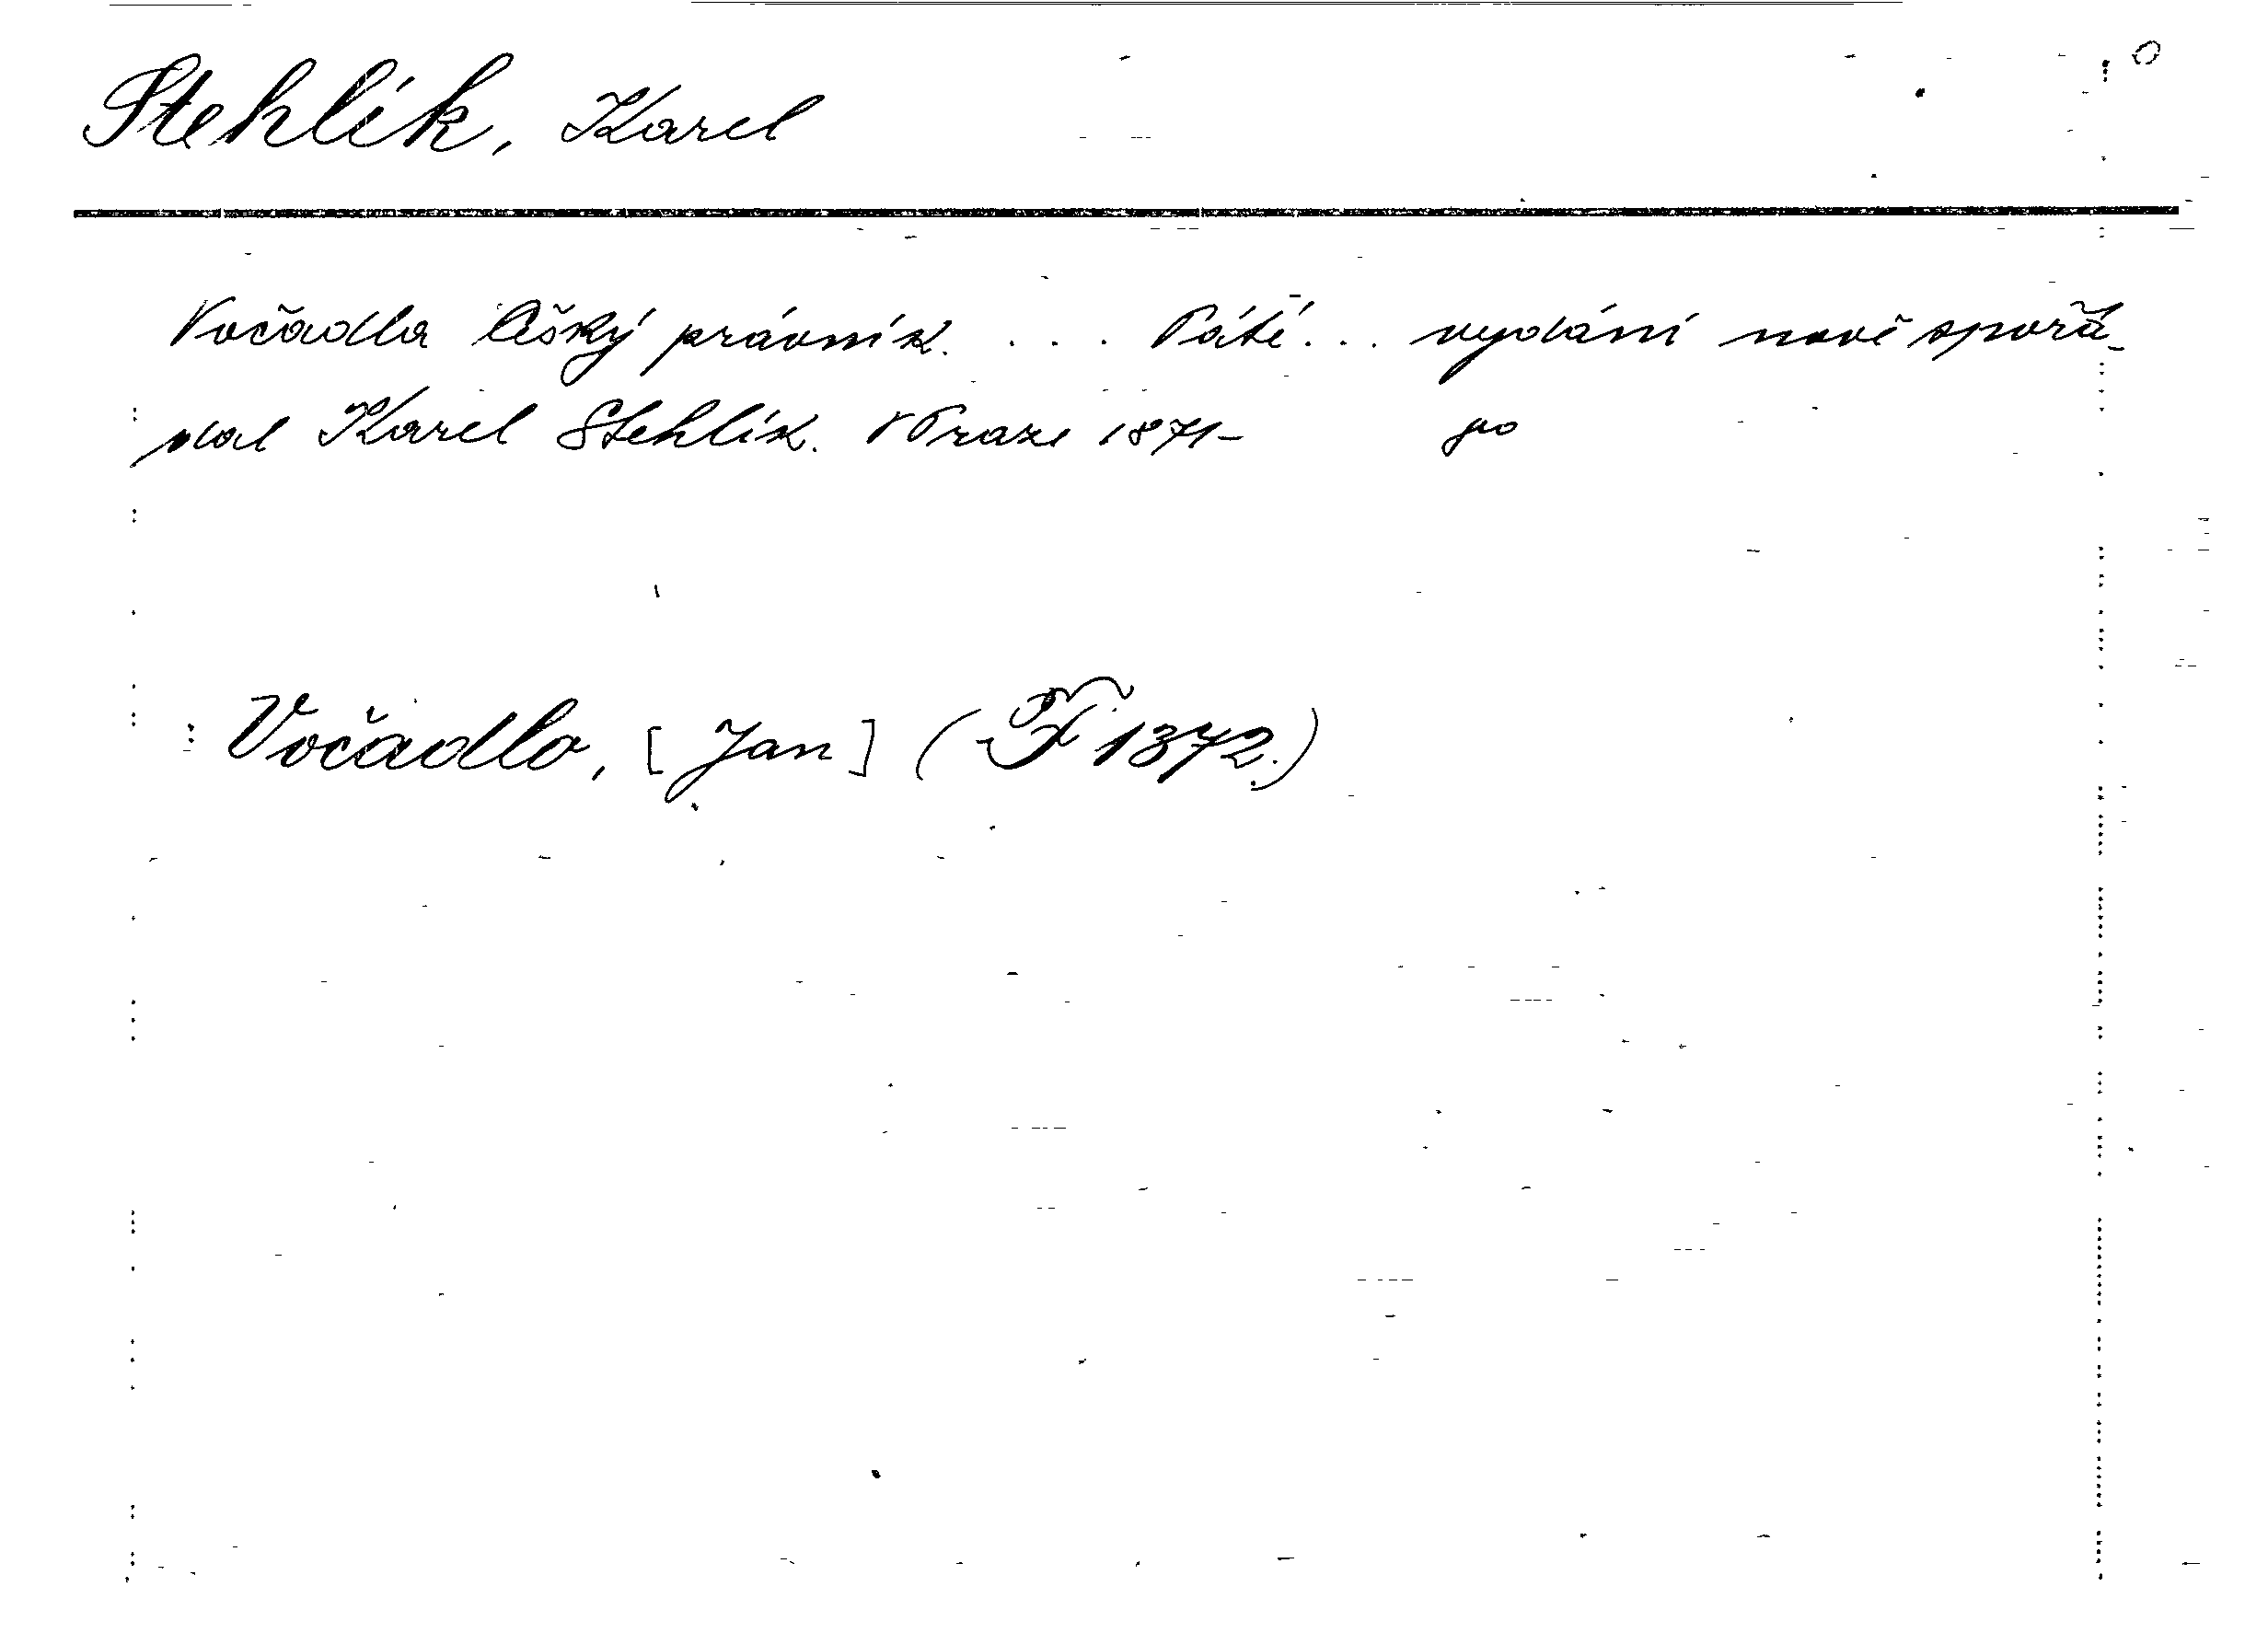 Stehlík, Karel
Vočadla Český právník. ... Páté... vydání nově spořá-
dal Karel Stehlík. V Praze 1871- 8o
Vočadlo, [Jan] (F 1372.)